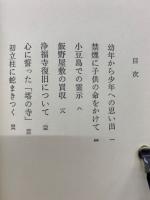 目次
幼年から少年への思い出 一
禁煙に子供の命をかけて
小豆島での霊示 八
飯野屋敷の買収
浄福寺復旧について
心に誓った「塔の寺」
初立柱に蛇まきつく